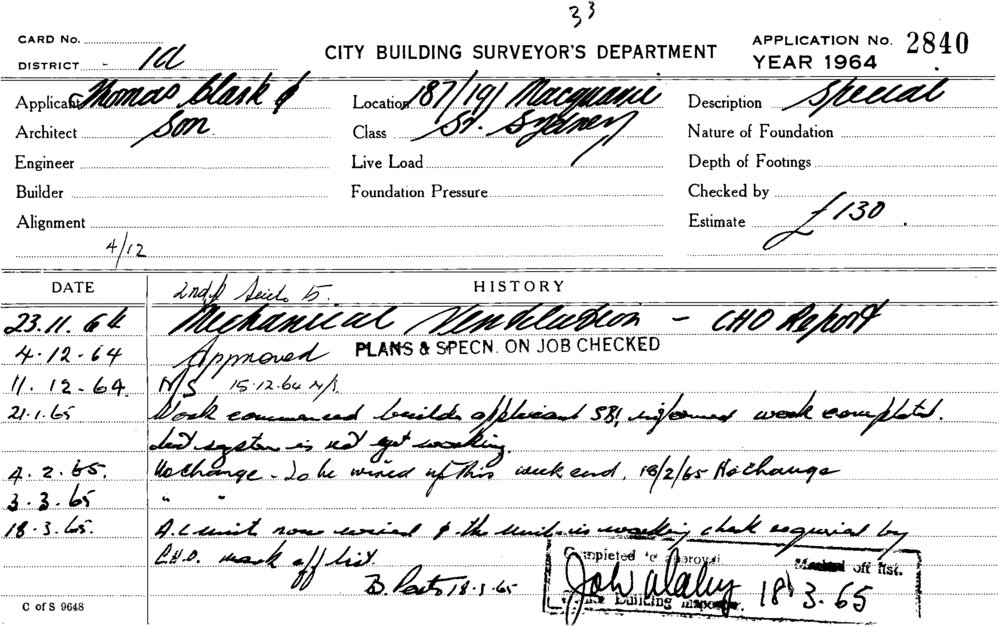 33
CARD No.
DISTRICT - 1a
CITY BUILDING SURVEYOR'S DEPARTMENT
APPLICATION No. 2840
YEAR 1964
Applicant Thomas Clark &
Architect Son.
Engineer
Builder
Alignment
4/12
Location 187/191 Macquarie
Class St. Sydney
Live Load
Foundation Pressure
Description Special
Nature of Foundation
Depth of Footings
Checked by
Estimate £130.
DATE
HISTORY
2nd
23.11.64 Mechanical Ventilation - CHO Report
4.12.64 Approved PLANS & SPECN. ON JOB CHECKED
11.12.64. N/S 15.12.64 N/S.
21.1.65 Work commenced builder applicant SBI, informed work completed.
but system is not yet working.
4.2.65. No change - To be wired up this week end. 18/2/65 No change
3.3.65 " "
18.3.65. A.C unit now wired & the unit is working check required by
C.H.O. mark off list.
18.3.65
Completed to approval Marked off list.
Building Inspector. 18.3.65
C of S 9648